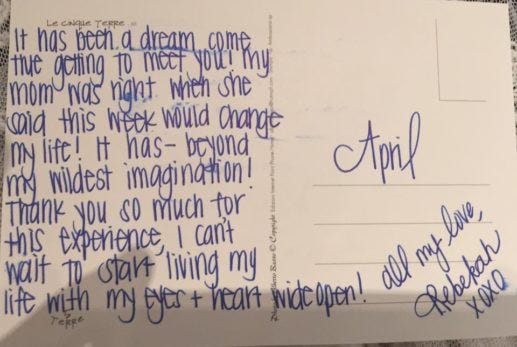 Le Cinque Terre
It has been a dream come
true getting to meet you! my
mom was right when she
said this week would change
my life! It has - beyond
my wildest imagination!
Thank you so much for
this experience, I can't
wait to start living my
life with my eyes + heart wide open!
Terre
April
all my love,
Rebekah
xoxo